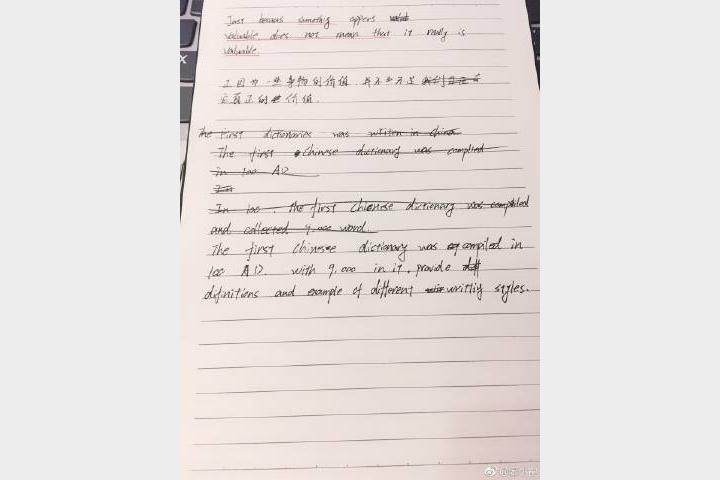 Just becaus something appers
valuable does not mean that it really is
valuable.
正因为一些事物的价值,并不
真正的 价值.
The first dictionaries was written in China
The first Chinese dictionary was complied
in 100 AD
In
In 100 . the first Chienese dictionary was compiled
and collected 9.000 word.
The first Chinese dictionary was compiled in
100 AD. with 9.000 in it. provide
difinitions and example of different writtig styles.